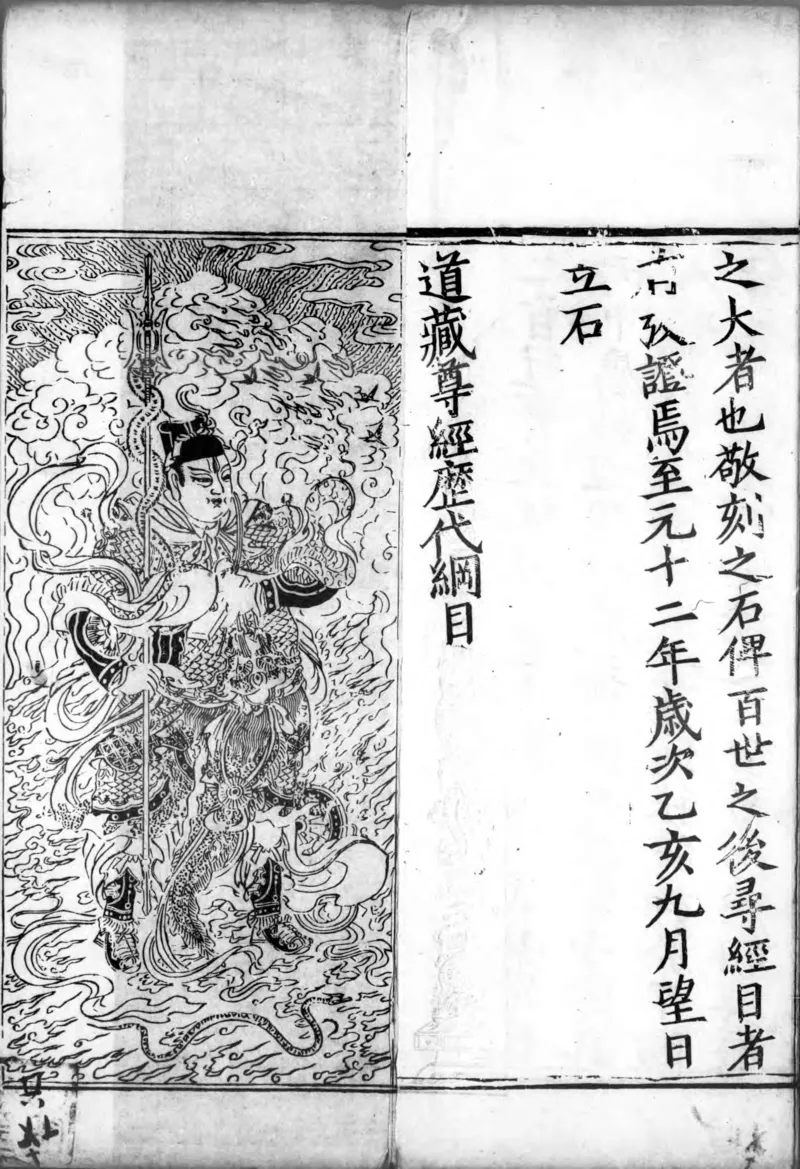 之大者也敬刻之石俾百世之後尋經目者
有攷證焉至元十二年歲次乙亥九月望日
立石
道藏尊經歷代綱目